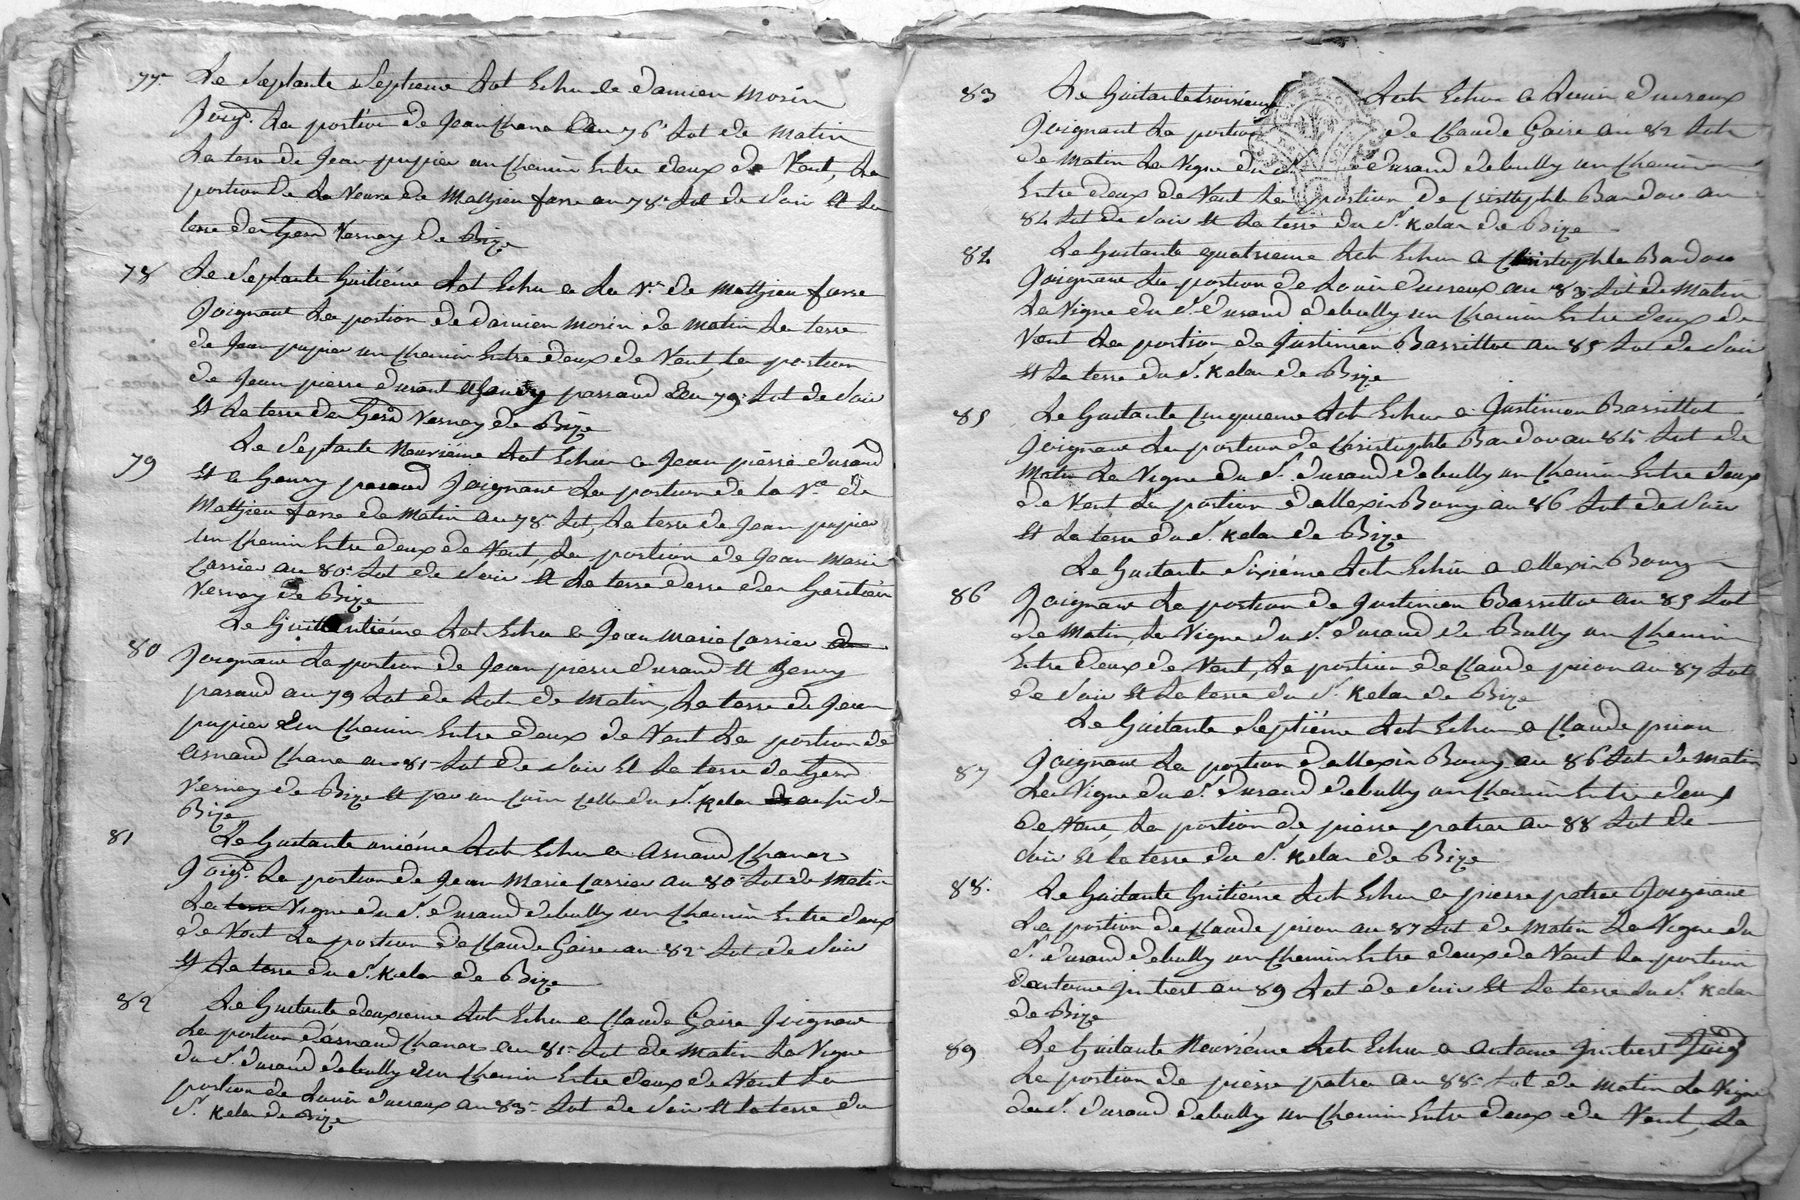 77. Le Septante Septieme Lot Echu a Damien Morin
Joigt. La portion de Jean Chana au 76e Lot de Matin
La terre de Jean pupier un Chemin Entre deux de Vent, La
portion de La Veuve de Mathieu farre au 78e Lot de Soir Et La
terre de Vernay de Bize
78 Le Septante huitiéme Lot Echu a La Ve. de Mathieu farre
Joignant La portion de Damien Morin de Matin La terre
de Jean pupier un Chemin Entre deux de Vent, La portion
de Jean pierre durant passaud au 79e Lot de Soir
Et La terre de Vernay de Bize
79 Le Septante Neuviéme Lot Echu a Jean pierre durand
Et a passaud Joignant La portion de La Ve. de
Mathieu farre de Matin au 78e Lot, La terre de Jean pupier
un Chemin Entre deux de Vent, La portion de Jean Marie
Carrier au 80e Lot de Soir Et La terre
Vernay de Bize
80 Le huittantiéme Lot Echu a Jean Marie Carrier
Joignant La portion de Jean pierre durand Et
au 79 Lot de Lot de Matin, La terre de Jean
pupier un Chemin Entre deux de Vent La portion de
Arnaud Chana au 81e Lot de Soir Et La terre de
Vernay de Bize Et par un Coin Celle du Sr. Kelar de
Bize
81 Le huitante uniéme Lot Echu a Arnaud Chanar
Joigt. La portion de Jean Marie Carrier au 80e Lot de Matin
La terre Vigne du Sr. durand debully un Chemin Entre deux
de Vent La portion de Claude Gaire au 82e Lot de Soir
Et La terre du Sr. Kelar de Bize
82 Le huitante deuxieme Lot Echu a Claude Gaire Joignant
La portion d'arnaud Chanar au 81e Lot de Matin La Vigne
du Sr. durand debully un Chemin Entre deux de Vent La
portion de Louis ducreux au 83e Lot de Soir Et La terre du
Sr. Kelar de Bize
83 Le huitante troisieme Lot Echu a Louis ducreux
Joignant La portion de Claude Gaire au 82 Lot
de Matin La Vigne du durand debully un Chemin
Entre deux de Vent La portion de Cristophle Bardou au
84 Lot de Soir Et La terre du Sr. Kelar de Bize
84 Le huitante quatrieme Lot Echu a Christophle Bardou
Joignant La portion de Louis ducreux au 83e Lot de Matin
La Vigne du Sr. durand debully un Chemin Entre deux de
Vent La portion de Justinien Barrittot au 85 Lot de Soir
Et La terre du Sr. Kelar de Bize
85 Le huitante Cinquieme Lot Echu a Justinien Barrittot
Joignant La portion de Christophle Bardou au 84e Lot de
Matin La Vigne du Sr. durand debully un Chemin Entre deux
de Vent La portion dallexis Bony au 86 Lot de Soir
Et La terre du Sr. Kelar de Bize
Le huitante Sixiéme Lot Echu a allexis Bony
86 Joignant La portion de Justinien Barrittot au 85 Lot
de Matin, La Vigne du Sr. durand de Bully un Chemin
Entre deux de Vent, La portion de Claude prion au 87 Lot
de Soir Et La terre du Sr. Kelar de Bize
Le huitante Septiéme Lot Echu a Claude prion
87 Joignant La portion dallexis Bony au 86 Lot de Matin
La Vigne du Sr. durand debully un Chemin Entre deux
de Vent, La portion de pierre patra au 88 Lot de
Soir Et La terre du Sr. Kelar de Bize
88. Le huitante huitieme Lot Echu a pierre patra Joignant
La portion de Claude prion au 87 Lot de Matin La Vigne du
Sr. durand debully un Chemin Entre deux de Vent La portion
dantoine Jmbert au 89 Lot de Soir Et La terre du Sr. Kelar
de Bize
89 Le huitante Neuviéme Lot Echu a antoine Jmbert Joigt
La portion de pierre patra au 88e Lot de Matin La Vigne
du Sr. durand debully un Chemin Entre deux de Vent, La